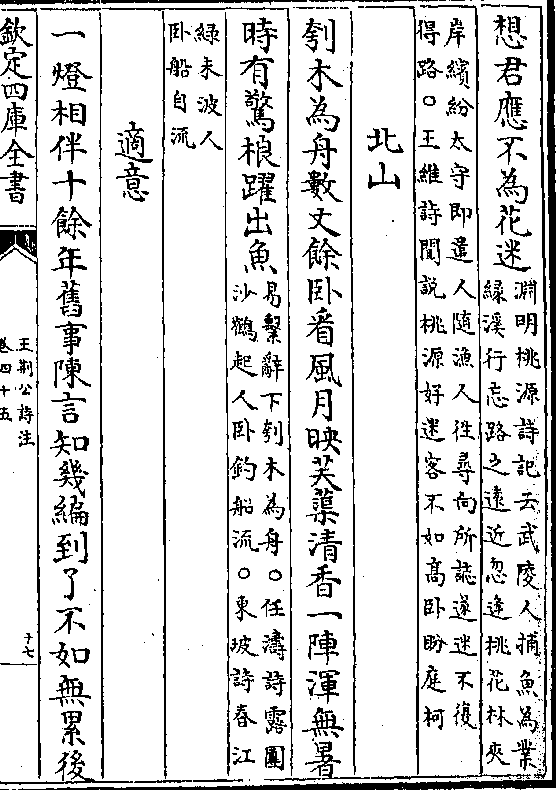 想君應不為花迷淵明桃源詩記云武陵人捕魚為業
緑溪行忘路之遠近忽逢桃花林夾
岸繽紛太守即遣人隨漁人往尋向所誌遂迷不復
得路○王維詩聞說桃源好迷客不如高卧盼庭柯
北山
刳木為舟數丈餘卧看風月映芙蕖清香一陣渾無暑
時有驚榔躍出魚易繫辭下刳木為舟○任濤詩露團
沙鶴起人卧釣船流○東坡詩春江
緑未波人
卧船自流
適意
一燈相伴十餘年舊事陳言知幾編到了不如無累後
欽定四庫全書
王荆公詩注
卷四十五
十七